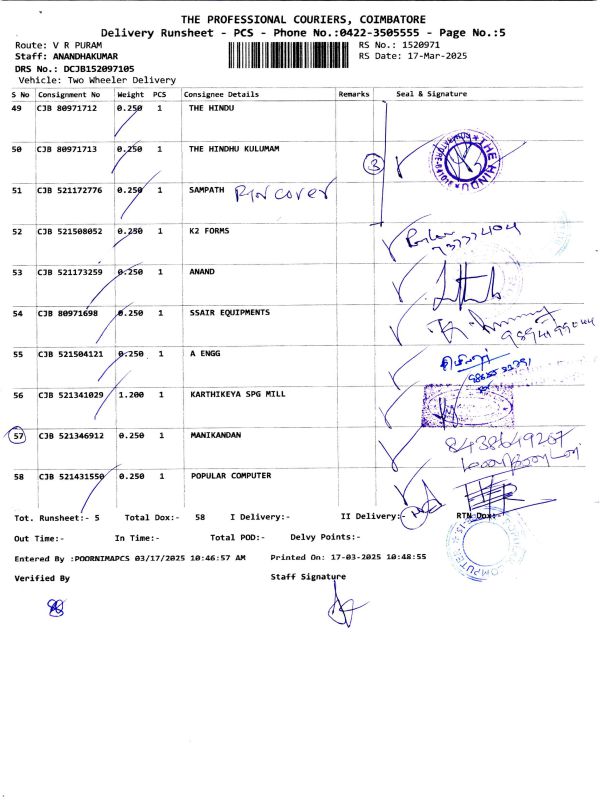 THE PROFESSIONAL COURIERS, COIMBATORE
Delivery Runsheet - PCS - Phone No.:0422-3505555 - Page No.:5
Route: V R PURAM
RS No.: 1520971
Staff: ANANDHAKUMAR
RS Date: 17-Mar-2025
DRS No.: DCJB152097105
Vehicle: Two Wheeler Delivery
S No Consignment No Weight PCS Consignee Details Remarks Seal & Signature
49 CJB 80971712 0.250 1 THE HINDU
50 CJB 80971713 0.250 1 THE HINDHU KULUMAM
3
THE HINDU
51 CJB 521172776 0.250 1 SAMPATH PIN COVER
52 CJB 521508052 0.250 1 K2 FORMS
53 CJB 521173259 0.250 1 ANAND
54 CJB 80971698 0.250 1 SSAIR EQUIPMENTS
55 CJB 521504121 0.250 1 A ENGG
56 CJB 521341029 1.200 1 KARTHIKEYA SPG MILL
57 CJB 521346912 0.250 1 MANIKANDAN
8438649267
58 CJB 521431550 0.250 1 POPULAR COMPUTER
Tot. Runsheet:- 5 Total Dox:- 58 I Delivery:- II Delivery:- RTN Dox:-
Out Time:- In Time:- Total POD:- Delvy Points:-
Entered By :POORNIMAPCS 03/17/2025 10:46:57 AM Printed On: 17-03-2025 10:48:55
Verified By Staff Signature